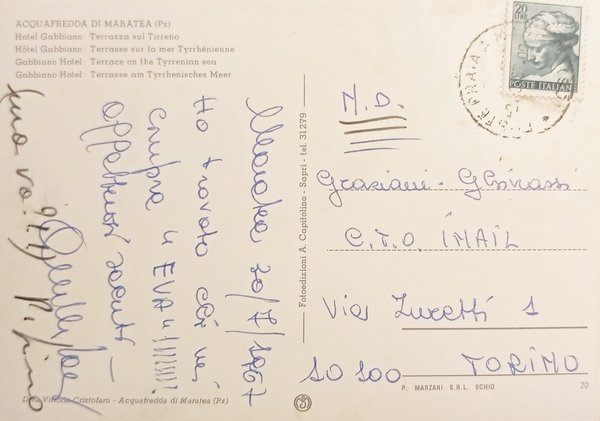 ACQUAFREDDA DI MARATEA (Pz)
Hotel Gabbiano: Terrazza sul Tirreno
Hôtel Gabbiano: Terrasse sur la mer Tyrrhénienne
Gabbiano Hotel: Terrace on the Tyrrenian sea
Gabbiano Hotel: Terrasse am Tyrrhenisches Meer
Maratea 20/7/1967
Ho trovato chi mi
compra "EVA"!!!!!!!
affettuosi saluti -
Fotoedizioni A. Capitolino - Sapri - tel. 31279
20
LIRE
POSTE ITALIANE
N.D.
Graziani-
C.T.O. IMAIL
Via Zuretti 1
10100 TORINO
Ditta Vittorio Cristofaro - Acquafredda di Maratea (Pz)
P. MARZARI S.R.L. SCHIO
20